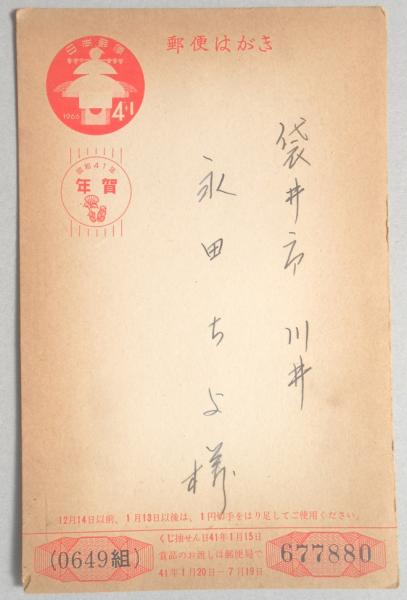 日本郵便
1966
4+1
郵便はがき
昭和41年
年賀
袋井市 川井
永田ちよ様
12月14日以前、1月13日以後は、1円切手をはり足してご使用ください。
(0649組)
くじ抽せん日41年1月15日
賞品のお渡しは郵便局で
41年1月20日-7月19日
677880